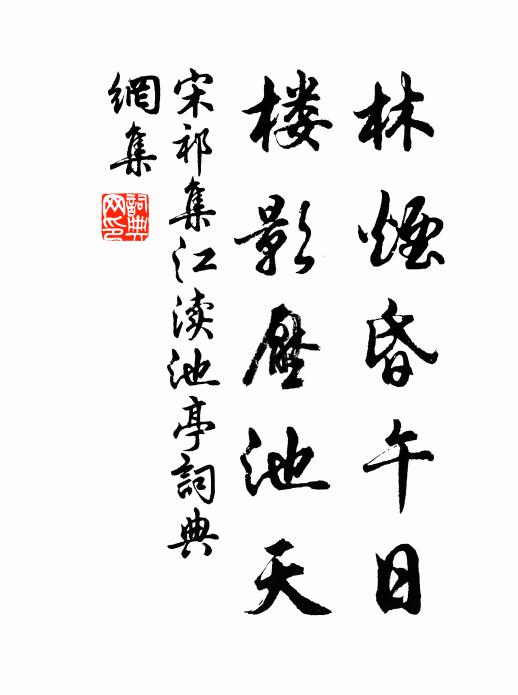 林煙昏午日
楼影壓池天
宋祁集江渎池亭詞典
網集
詞典网印